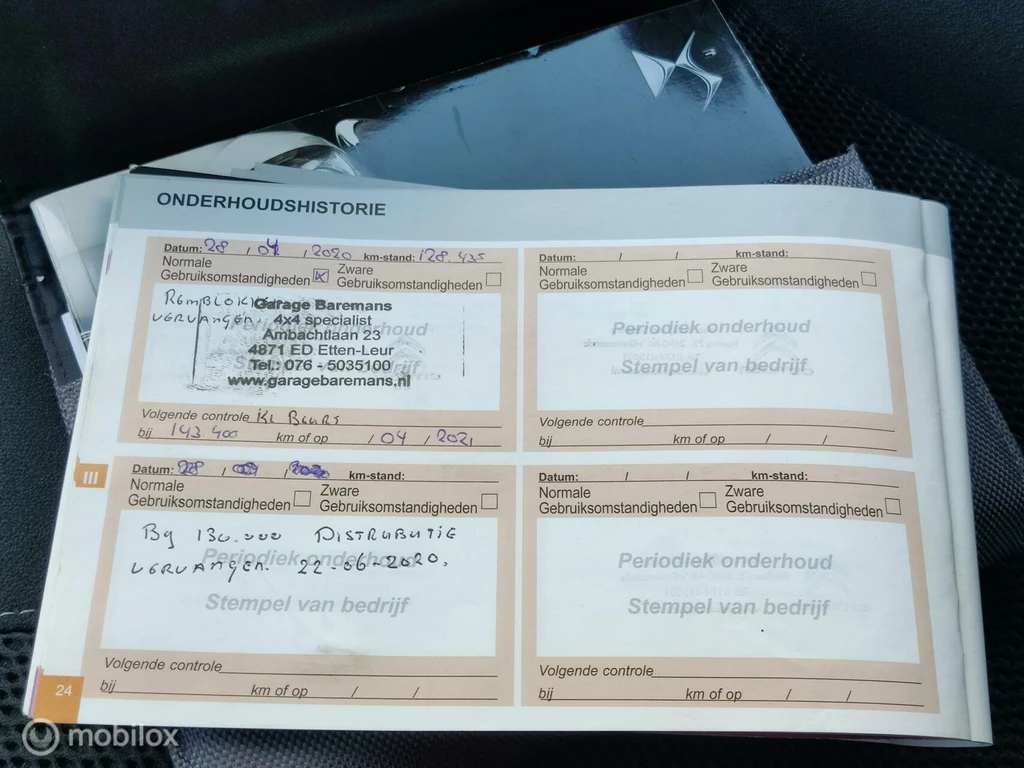 ONDERHOUDSHISTORIE
Datum: 28 / 04 / 2020 km-stand: 128.435
Normale
Gebruiksomstandigheden
Zware
Gebruiksomstandigheden
REMBLOKK
VERVANGEN.
Garage Baremans
4x4 specialist
Ambachtlaan 23
4871 ED Etten-Leur
Tel.: 076 - 5035100
www.garagebaremans.nl
Volgende controle KL BEURT
bij 143 400 km of op / 04 / 2021
Datum: / / km-stand:
Normale
Gebruiksomstandigheden
Zware
Gebruiksomstandigheden
Periodiek onderhoud
Stempel van bedrijf
Volgende controle
bij km of op / /
III
Datum: 28 / / 2020 km-stand:
Normale
Gebruiksomstandigheden
Zware
Gebruiksomstandigheden
By 130.000 DISTRUBUTIE
VERVANGEN. 22-06-2020.
Periodiek onderhoud
Stempel van bedrijf
Volgende controle
bij km of op / /
Datum: / / km-stand:
Normale
Gebruiksomstandigheden
Zware
Gebruiksomstandigheden
Periodiek onderhoud
Stempel van bedrijf
Volgende controle
bij km of op / /
24
mobilox